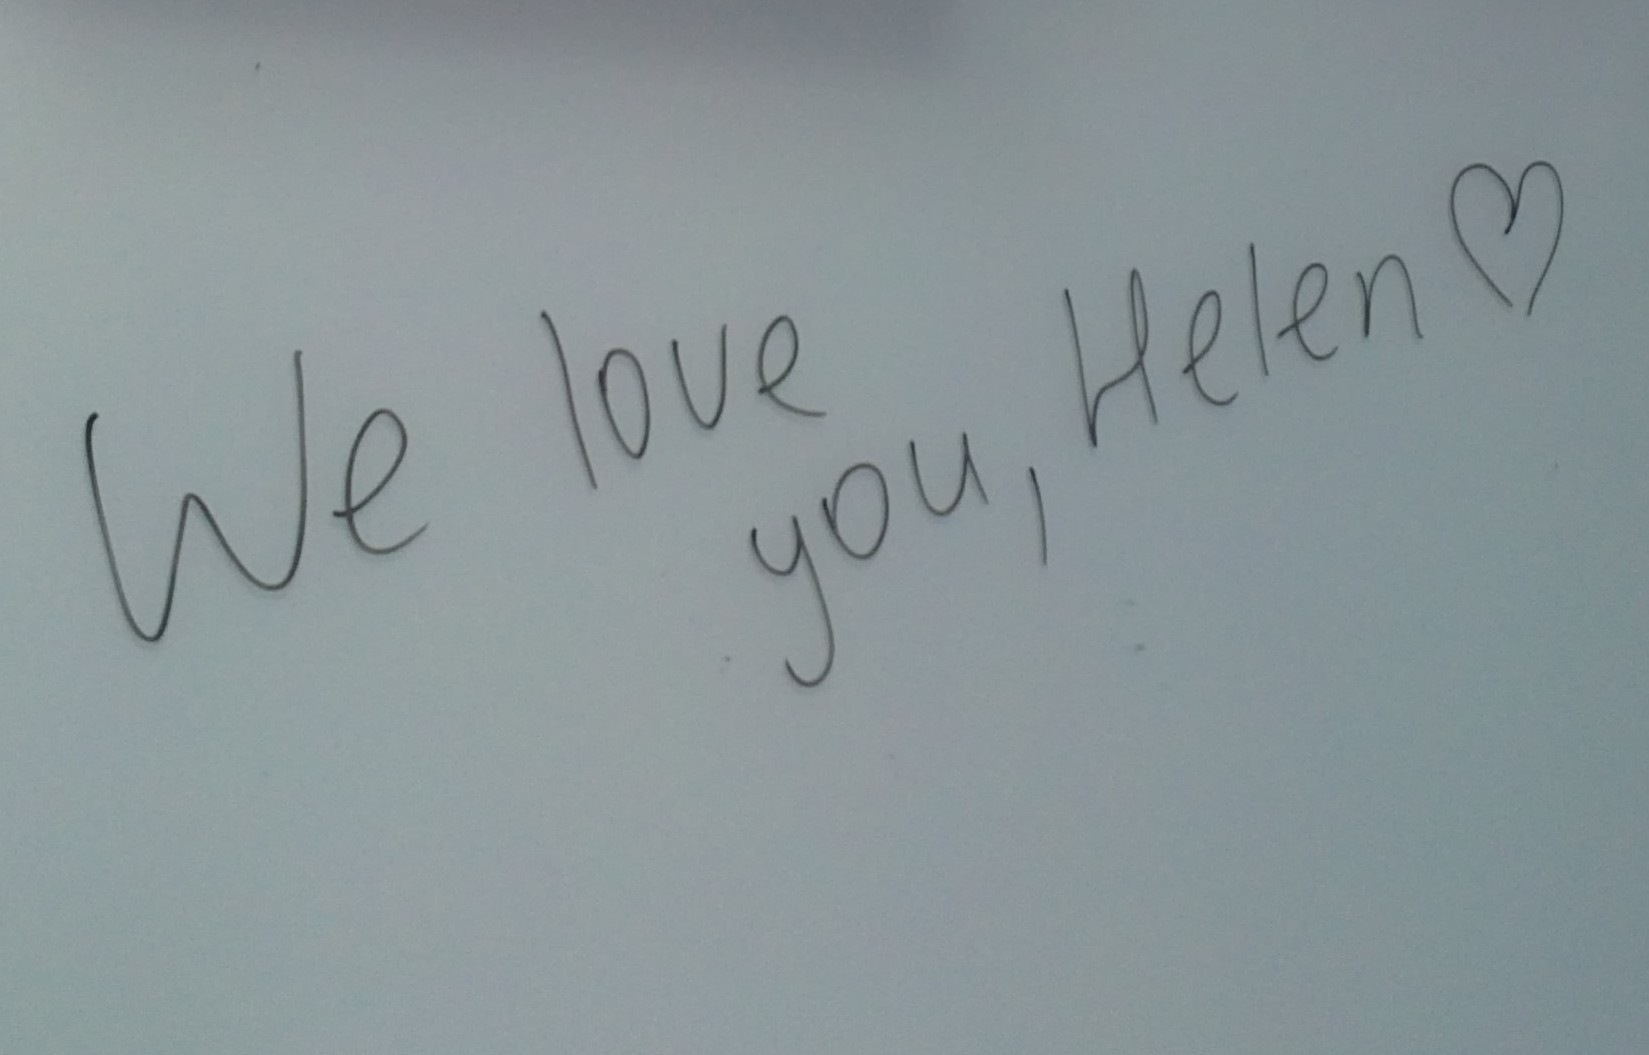 We love
you, Helen ♡